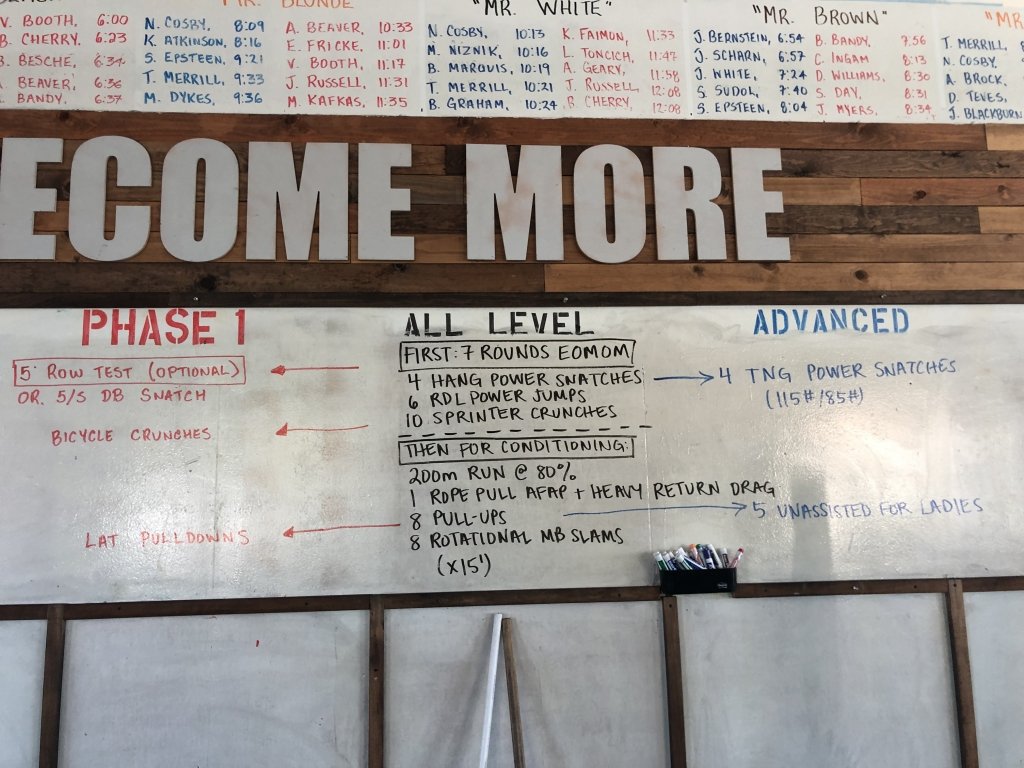 MR. BLONDE
"MR. WHITE"
"MR. BROWN"
"MR.
V. BOOTH, 6:00
B. CHERRY, 6:23
B. BESCHE, 6:34
BEAVER, 6:36
BANDY, 6:37
N. COSBY, 8:09
K. ATKINSON, 8:16
S. EPSTEEN, 9:21
T. MERRILL, 9:33
M. DYKES, 9:36
A. BEAVER, 10:33
E. FRICKE, 11:01
V. BOOTH, 11:17
J. RUSSELL, 11:31
M. KAFKAS, 11:35
N. COSBY, 10:13
M. NIZNIK, 10:16
B. MARQUIS, 10:19
T. MERRILL, 10:21
B. GRAHAM, 10:24
K. FAIMON, 11:33
L. TONCICH, 11:47
A. GEARY, 11:58
J. RUSSELL, 12:08
B. CHERRY, 12:08
J. BERNSTEIN, 6:54
J. SCHARN, 6:57
J. WHITE, 7:24
S. SUDOL, 7:40
S. EPSTEEN, 8:04
B. BANDY, 7:56
C. INGAM 8:13
D. WILLIAMS, 8:30
S. DAY, 8:31
J. MYERS, 8:34
T. MERRILL,
N. COSBY,
A. BROCK,
D. TEVES,
J. BLACKBURN
ECOME MORE
PHASE 1
5' ROW TEST (OPTIONAL)
OR 5/5 DB SNATCH
BICYCLE CRUNCHES
LAT PULLDOWNS
ALL LEVEL
FIRST: 7 ROUNDS EOMOM
4 HANG POWER SNATCHES
6 RDL POWER JUMPS
10 SPRINTER CRUNCHES
THEN FOR CONDITIONING:
200m RUN @ 80%
1 ROPE PULL AFAP + HEAVY RETURN DRAG
8 PULL-UPS
8 ROTATIONAL MB SLAMS
(x15')
ADVANCED
4 TNG POWER SNATCHES
(115#/85#)
5 UNASSISTED FOR LADIES